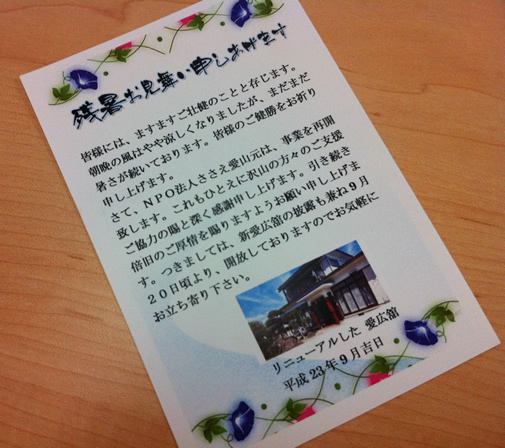 残暑お見舞い申しあげます
皆様には、ますますご壮健のことと存じます。
朝晩の風はやや涼しくなりましたが、まだまだ
暑さが続いております。皆様のご健勝をお祈り
申し上げます。
さて、NPO法人ささえ愛山元は、事業を再開
致します。これもひとえに沢山の方々のご支援
ご協力の賜と深く感謝申し上げます。引き続き
倍旧のご厚情を賜りますようお願い申し上げま
す。つきましては、新愛広舘の披露も兼ね9月
20日頃より、開放しておりますのでお気軽に
お立ち寄り下さい。
リニューアルした 愛広舘
平成23年9月吉日